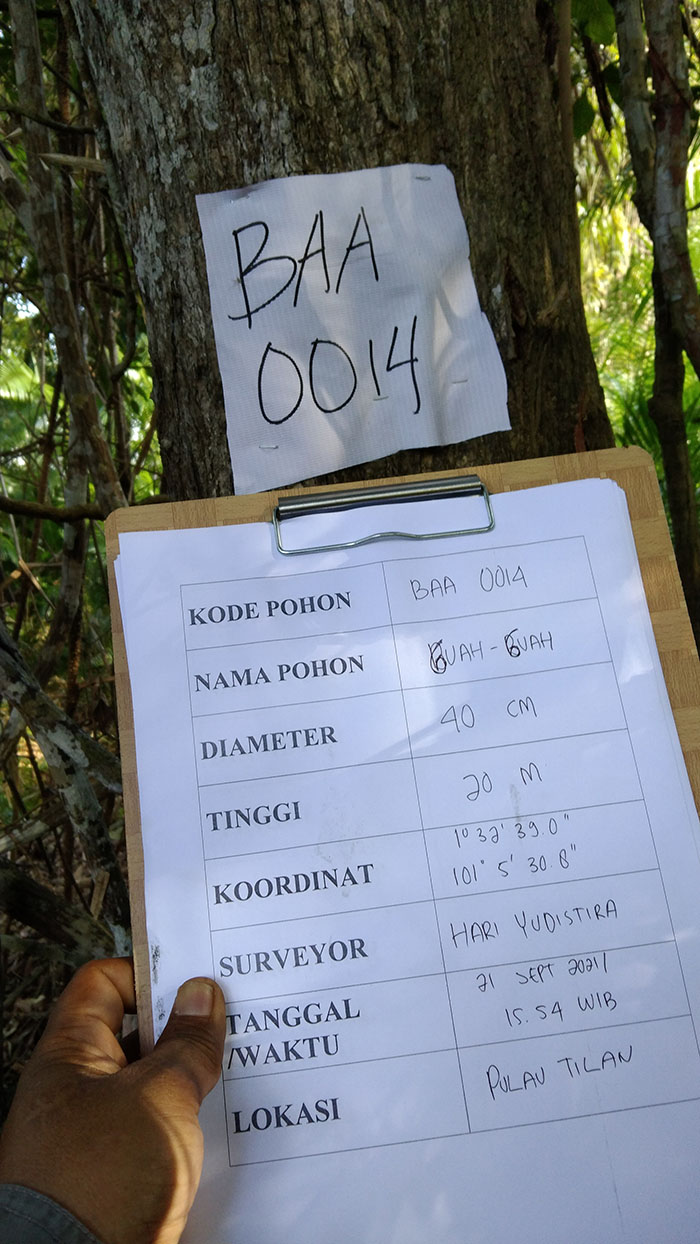 BAA
0014
KODE POHON BAA 0014
NAMA POHON BUAH - BUAH
DIAMETER 40 CM
TINGGI 20 M
KOORDINAT 1° 32' 39.0"
101° 5' 30.8"
SURVEYOR HARI YUDISTIRA
TANGGAL
/WAKTU
21 SEPT 2021/
15.54 WIB
LOKASI PULAU TILAN